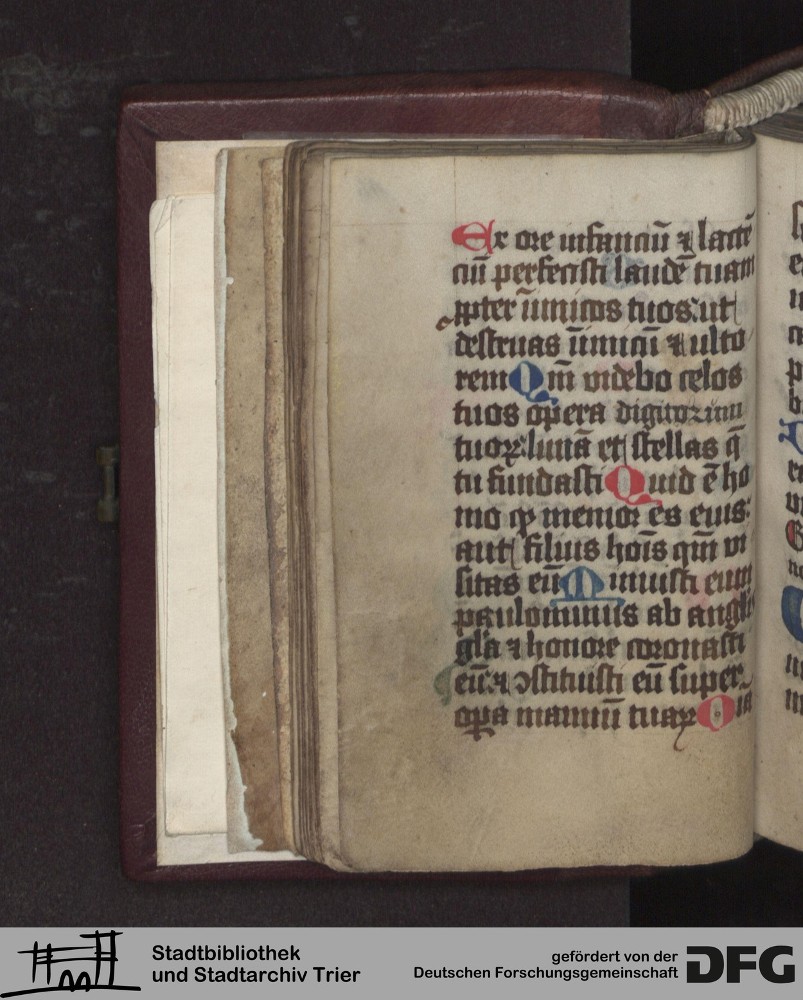 Ex ore infanciū ⁊ lactē
ciū perfecisti laudē tuam
ꝓpter īimicos tuos: ut
destruas īimicū ⁊ ulto
rem Qm̄ videbo celos
tuos opera digitorum
tuoꝝ: lunā et stellas q̄
tu fundasti Quid ē ho
mo ꝙ memor es eius:
aut filius hoīs qm̄ vi
sitas eū Minuisti eum
paulominus ab angelis
gl̄a ⁊ honore coronasti
eū: ⁊ ꝯstituisti eū super
oꝑa manuū tuaꝝ Oīa
Stadtbibliothek
und Stadtarchiv Trier
gefördert von der
Deutschen Forschungsgemeinschaft
DFG